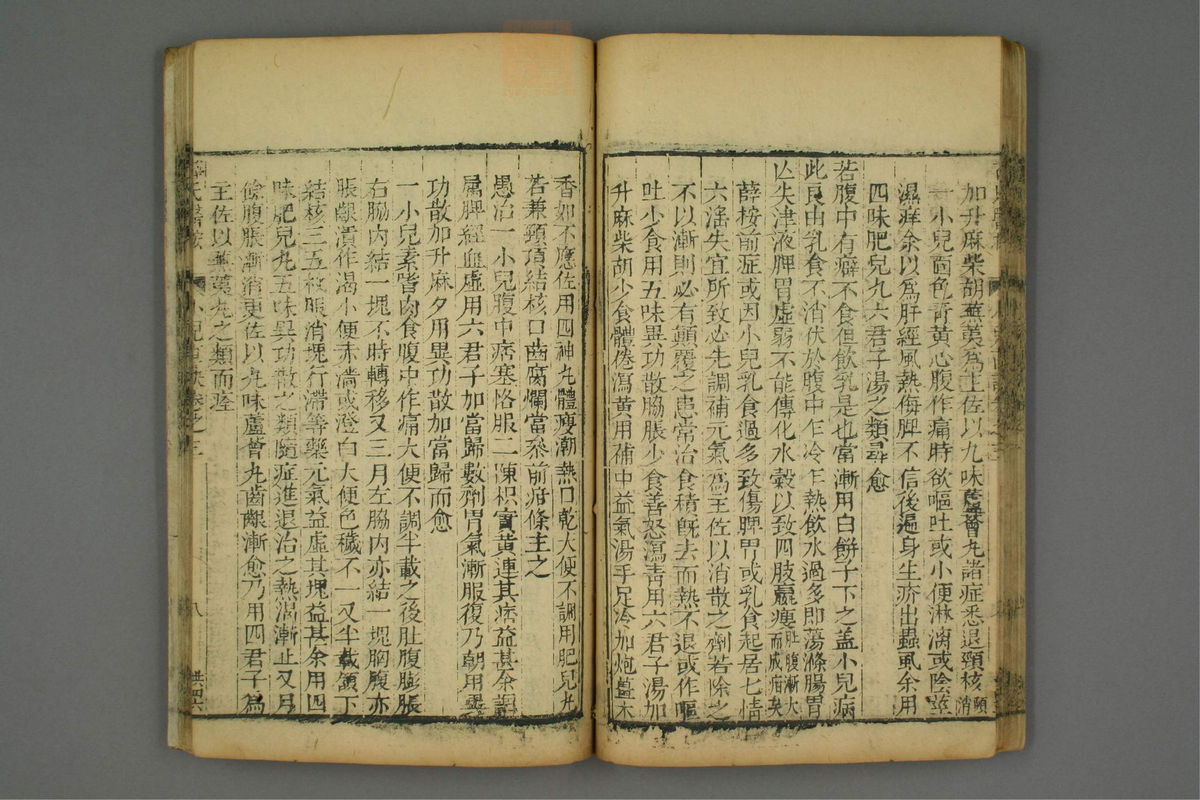 加升麻柴胡蕪荑為主佐以九味蘆薈丸諸症悉退頸核頓消
一小兒面色青黃心腹作痛時欲嘔吐或小便淋漓或陰莖
濕痒余以為肝經風熱侮脾不信後遍身生疥出蟲虱余用
四味肥兒丸六君子湯之類尋愈
若腹中有癖不食但飲乳是也當漸用白餅子下之盖小兒病
此良由乳食不消伏於腹中乍冷乍熱飲水過多即蕩滌腸胃
亡失津液脾胃虛弱不能傳化水穀以致四肢羸瘦肚腹漸大而成疳矣
薛桉前症或因小兒乳食過多致傷脾胃或乳食起居七情
六滛失宜所致必先調補元氣為主佐以消散之劑若除之
不以漸則必有顛覆之患常治食積旣去而熱不退或作嘔
吐少食用五味異功散脇脹少食善怒瀉青用六君子湯加
升麻柴胡少食體倦瀉黃用補中益氣湯手足冷加炮薑木
香如不應佐用四神丸體瘦潮熱口乾大便不調用肥兒丸
若兼頸頂結核口齒腐爛當叅前疳條主之
愚治一小兒腹中痞塞恪服二陳枳實黃連其痞益甚余謂
属脾經血虛用六君子加當歸數劑胃氣漸復乃朝用異
功散加升麻夕用異功散加當歸而愈
一小兒素嗜肉食腹中作痛大便不調半載之後肚腹膨脹
右脇內結一塊不時轉移又三月左脇內亦結一塊胸腹亦
脹齦潰作渴小便赤濇或澄白大便色穢不一又半載頷下
結核三五枚服消塊行滯等藥元氣益虛其塊益甚余用四
味肥兒丸五味異功散之類隨症進退治之熱渴漸止又月
餘腹脹漸消更佐以九味蘆薈丸齒齦漸愈乃用四君子為
主佐以蕪荑丸之類而痊
薛氏醫桉
小兒直訣卷之三
八
共四六